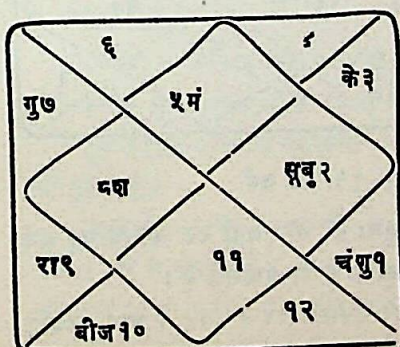 ६ ४
के३
गु७ ५मं
८श सूबु२
रा९ ११ चंशु१
बीज१० १२